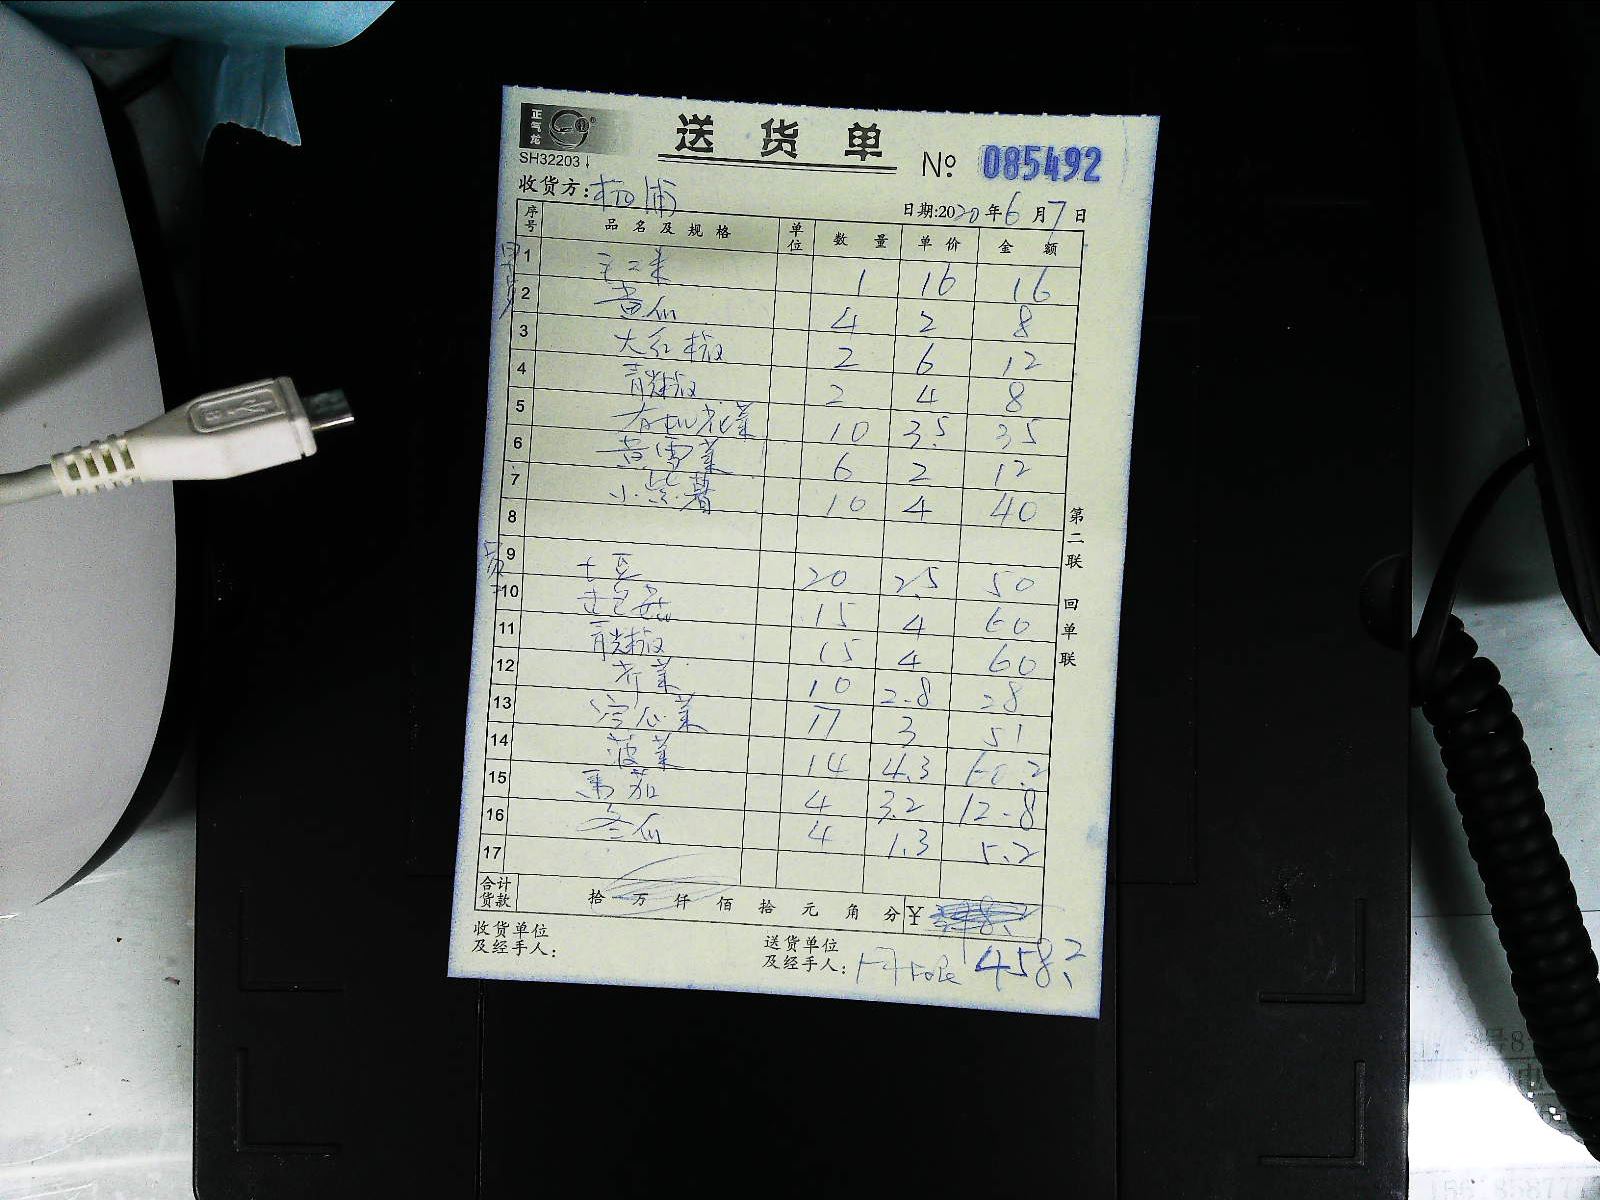 正气龙
送货单
SH32203
№ 085492
收货方:杨浦
日期:2020年6月7日
序号 品名及规格 单位 数量 单价 金额
1 玉米 1 16 16
2 黄瓜 4 2 8
3 大红椒 2 6 12
4 青尖椒 2 4 8
5 有机花菜 10 3.5 35
6 黄 菜 6 2 12
7 小紫薯 10 4 40
8
9 土豆 20 2.5 50
10 菇 15 4 60
11 青尖椒 15 4 60
12 芹菜 10 2.8 28
13 空心菜 17 3 51
14 菠菜 14 4.3 60.2
15 番茄 4 3.2 12.8
16 冬瓜 4 1.3 5.2
17
合计货款 拾 万 仟 佰 拾 元 角 分 ¥
458.2
收货单位及经手人:
送货单位及经手人:
第二联 回单联